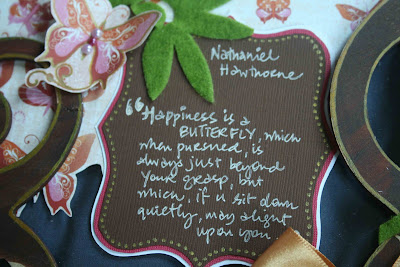 Nathaniel
Hawthorne
"Happiness is a
BUTTERFLY, which
when pursued, is
always just beyond
your grasp, but
which, if u sit down
quietly, may alight
upon you